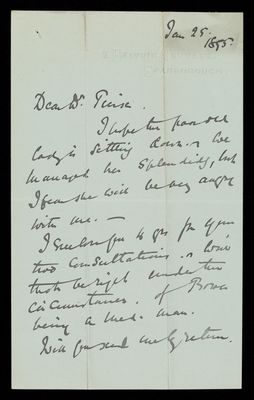 Jan 25.
1895.
Dear Dr. 
I hope the poor old
lady is settling down. We
managed her splendidly, but
I fear she will be very angry
with me. —
I enclose you 4 gs for your
two consultations.
that be right under the
circumstances, of
being a med. man.
Will you send me by return.